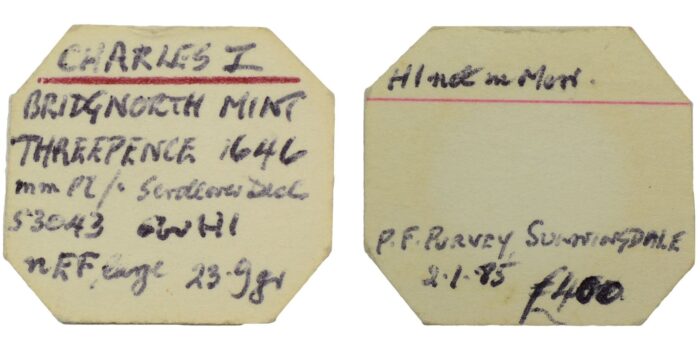 CHARLES I
BRIDGNORTH MINT
THREEPENCE 1646
mm Pl/-
S3043 H1
nEF, large 23.9gr
H1 not in Morr.
P.F. PURVEY, SUNNINGDALE
2.1.85
£400